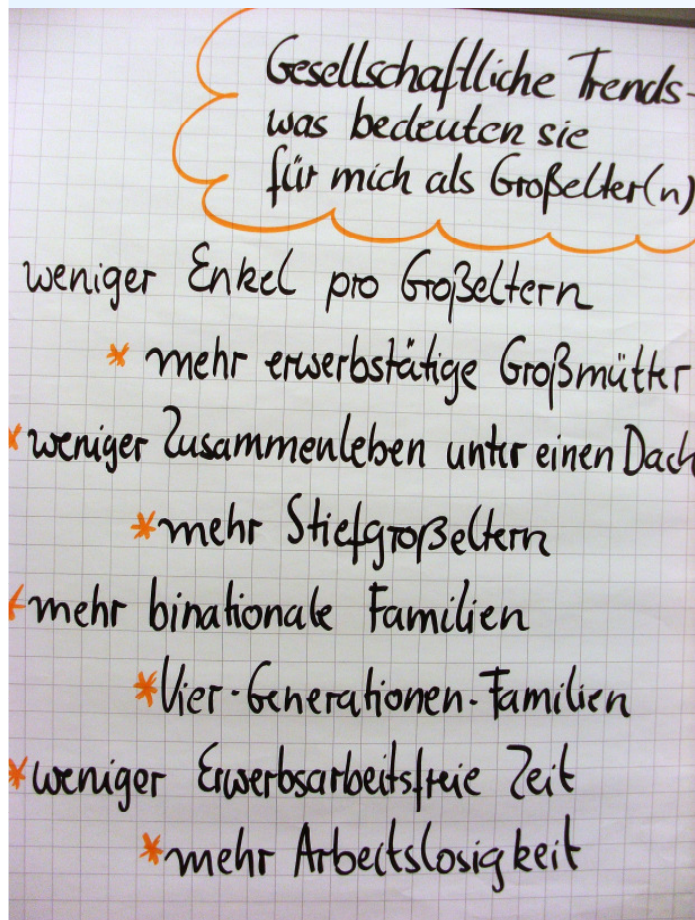 Gesellschaftliche Trends-
was bedeuten sie
für mich als Großelter(n)
weniger Enkel pro Großeltern
* mehr erwerbstätige Großmütter
* weniger Zusammenleben unter einen Dach
* mehr Stiefgroßeltern
* mehr binationale Familien
* Vier-Generationen-Familien
* weniger Erwerbsarbeitsfreie Zeit
* mehr Arbeitslosigkeit